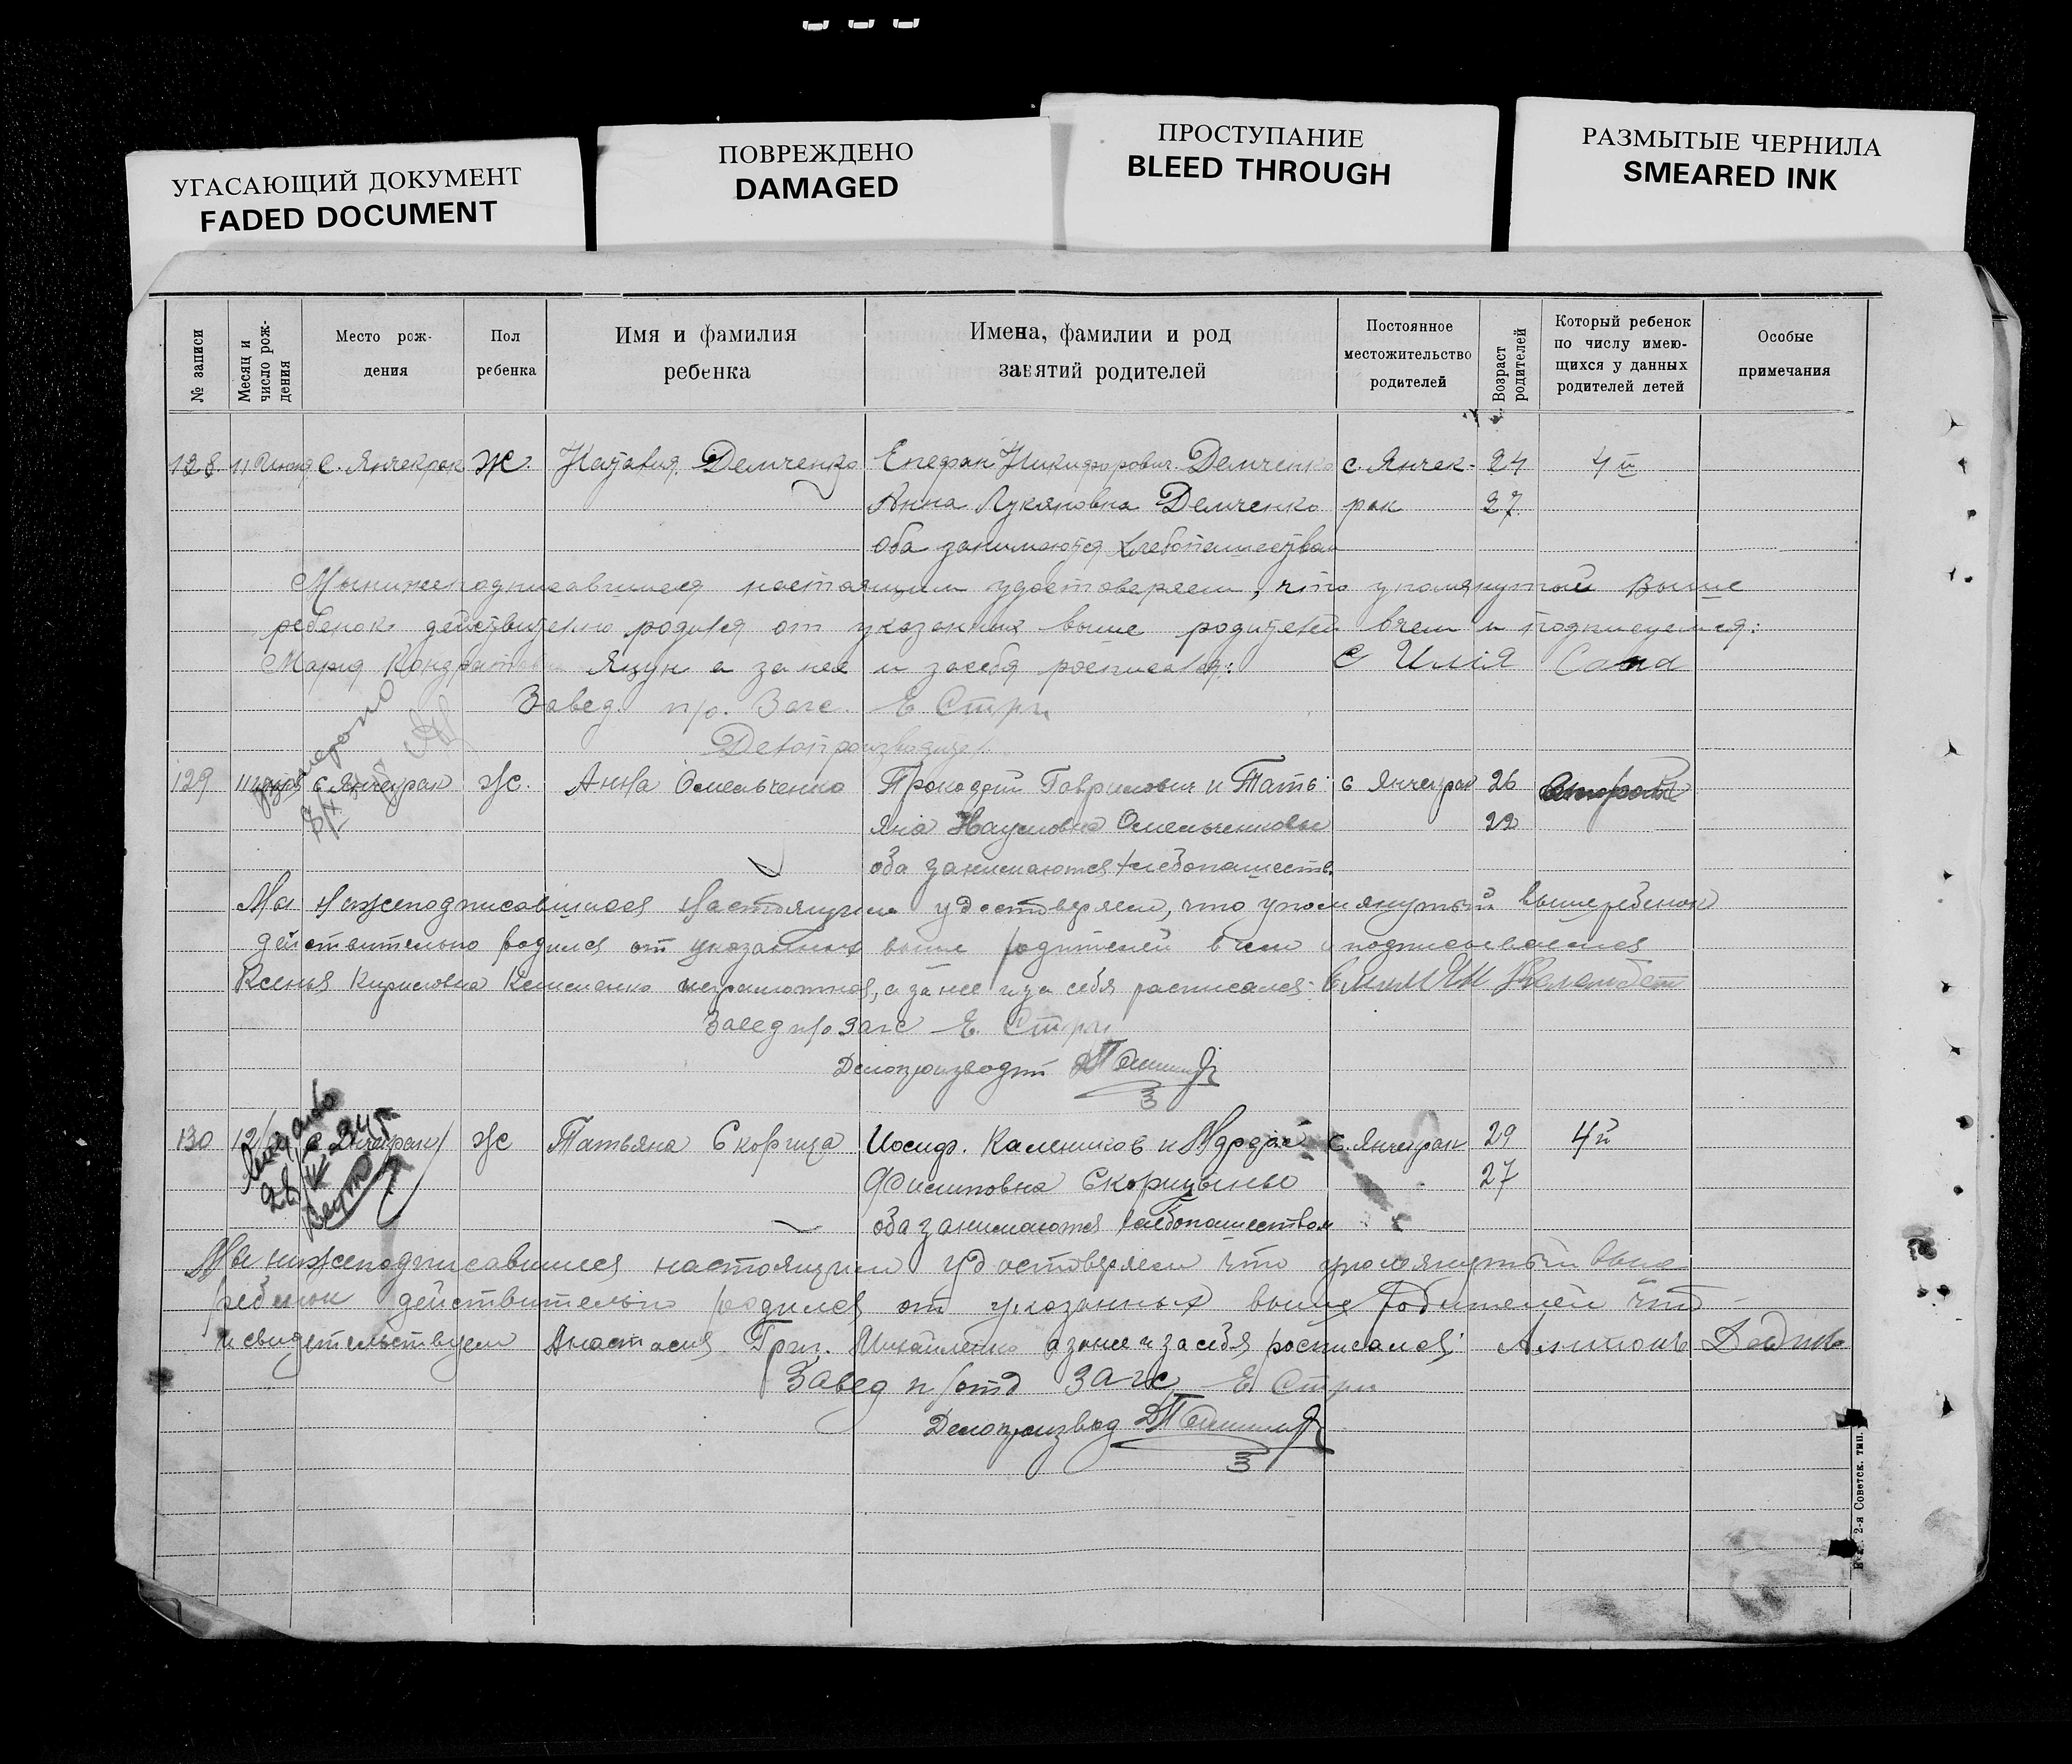 УГАСАЮЩИЙ ДОКУМЕНТ
FADED DOCUMENT
ПОВРЕЖДЕНО
DAMAGED
ПРОСТУПАНИЕ
BLEED THROUGH
РАЗМЫТЫЕ ЧЕРНИЛА
SMEARED INK
№ записи
Месяц и число рождения
Место рождения
Пол ребенка
Имя и фамилия ребенка
Имена, фамилии и род занятий родителей
Постоянное местожительство родителей
Возраст родителей
Который ребенок по числу имеющихся у данных родителей детей
Особые примечания
128 11 с. Янчекрак Ж. Демченко Никифорович Демченко с. Янчек- 24 4й
Анна Лукяновна Демченко рак 27
оба занимаются хлебопашеством
Мы нижеподписавшиеся настоящим удостоверяем, что упомянутый выше
ребенок действительно родился от указанных выше родителей в чем и подписуемся:
Мария Яцун а за нее и за себя росписался:
Завед. п/о. Загс. Е Стри
Делопроизводител
129 с Янчекрак Ж. Анна Омельченко Гаврилович и Тать- с Янчекрак 26
яна Наумовна Омельченковы 22
оба занимаются хлебопашеств.
Мы нижеподписавшиеся настоящим удостоверяем, что упомянутый выше ребенок
действительно родился от указанных выше родителей в чем и подписываемся
Ксенья Кириловна неграмотная, а за нее и за себя расписался:
Завед п/о Загс Е. Стри
Делопроизводит
130 12 с. Янчекрак Ж Татьяна Скорица Иосиф. Калеников и с. Янчекрак 29 4й
Филиповна Скорицыны 27
оба занимаются хлебопашеством
Мы нижеподписавшиеся настоящим удостоверяем что упомянутый выше
ребенок действительно родился от указанных выше родителей что
и свидетельствуем Анастасия Григ. Михайленко а за нее и за себя росписался: Антонъ
Завед п/отд Загс Е Стри
Делопроизвод
2-я Советск. тип.